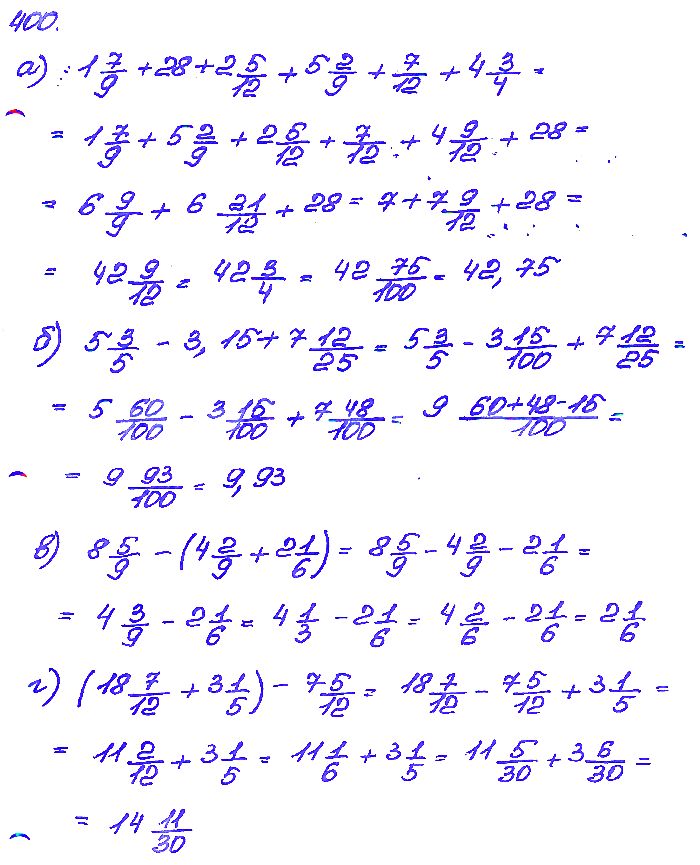 400.
а) 1 7/9 + 28 + 2 5/12 + 5 2/9 + 7/12 + 4 3/4 =
= 1 7/9 + 5 2/9 + 2 5/12 + 7/12 + 4 9/12 + 28 =
= 6 9/9 + 6 21/12 + 28 = 7 + 7 9/12 + 28 =
= 42 9/12 = 42 3/4 = 42 75/100 = 42,75
б) 5 3/5 - 3,15 + 7 12/25 = 5 3/5 - 3 15/100 + 7 12/25 =
= 5 60/100 - 3 15/100 + 7 48/100 = 9 60+48-15/100 =
= 9 93/100 = 9,93
в) 8 5/9 - (4 2/9 + 2 1/6) = 8 5/9 - 4 2/9 - 2 1/6 =
= 4 3/9 - 2 1/6 = 4 1/3 - 2 1/6 = 4 2/6 - 2 1/6 = 2 1/6
г) (18 7/12 + 3 1/5) - 7 5/12 = 18 7/12 - 7 5/12 + 3 1/5 =
= 11 2/12 + 3 1/5 = 11 1/6 + 3 1/5 = 11 5/30 + 3 6/30 =
= 14 11/30